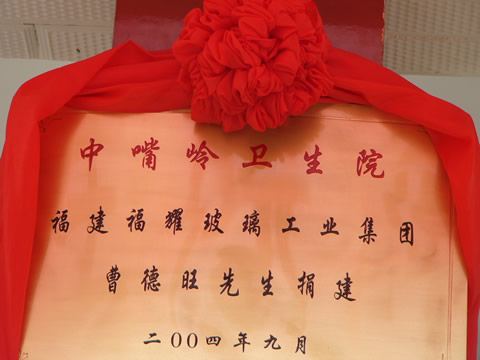 中嘴岭卫生院
福建福耀玻璃工业集团
曹德旺先生捐建
二00四年九月